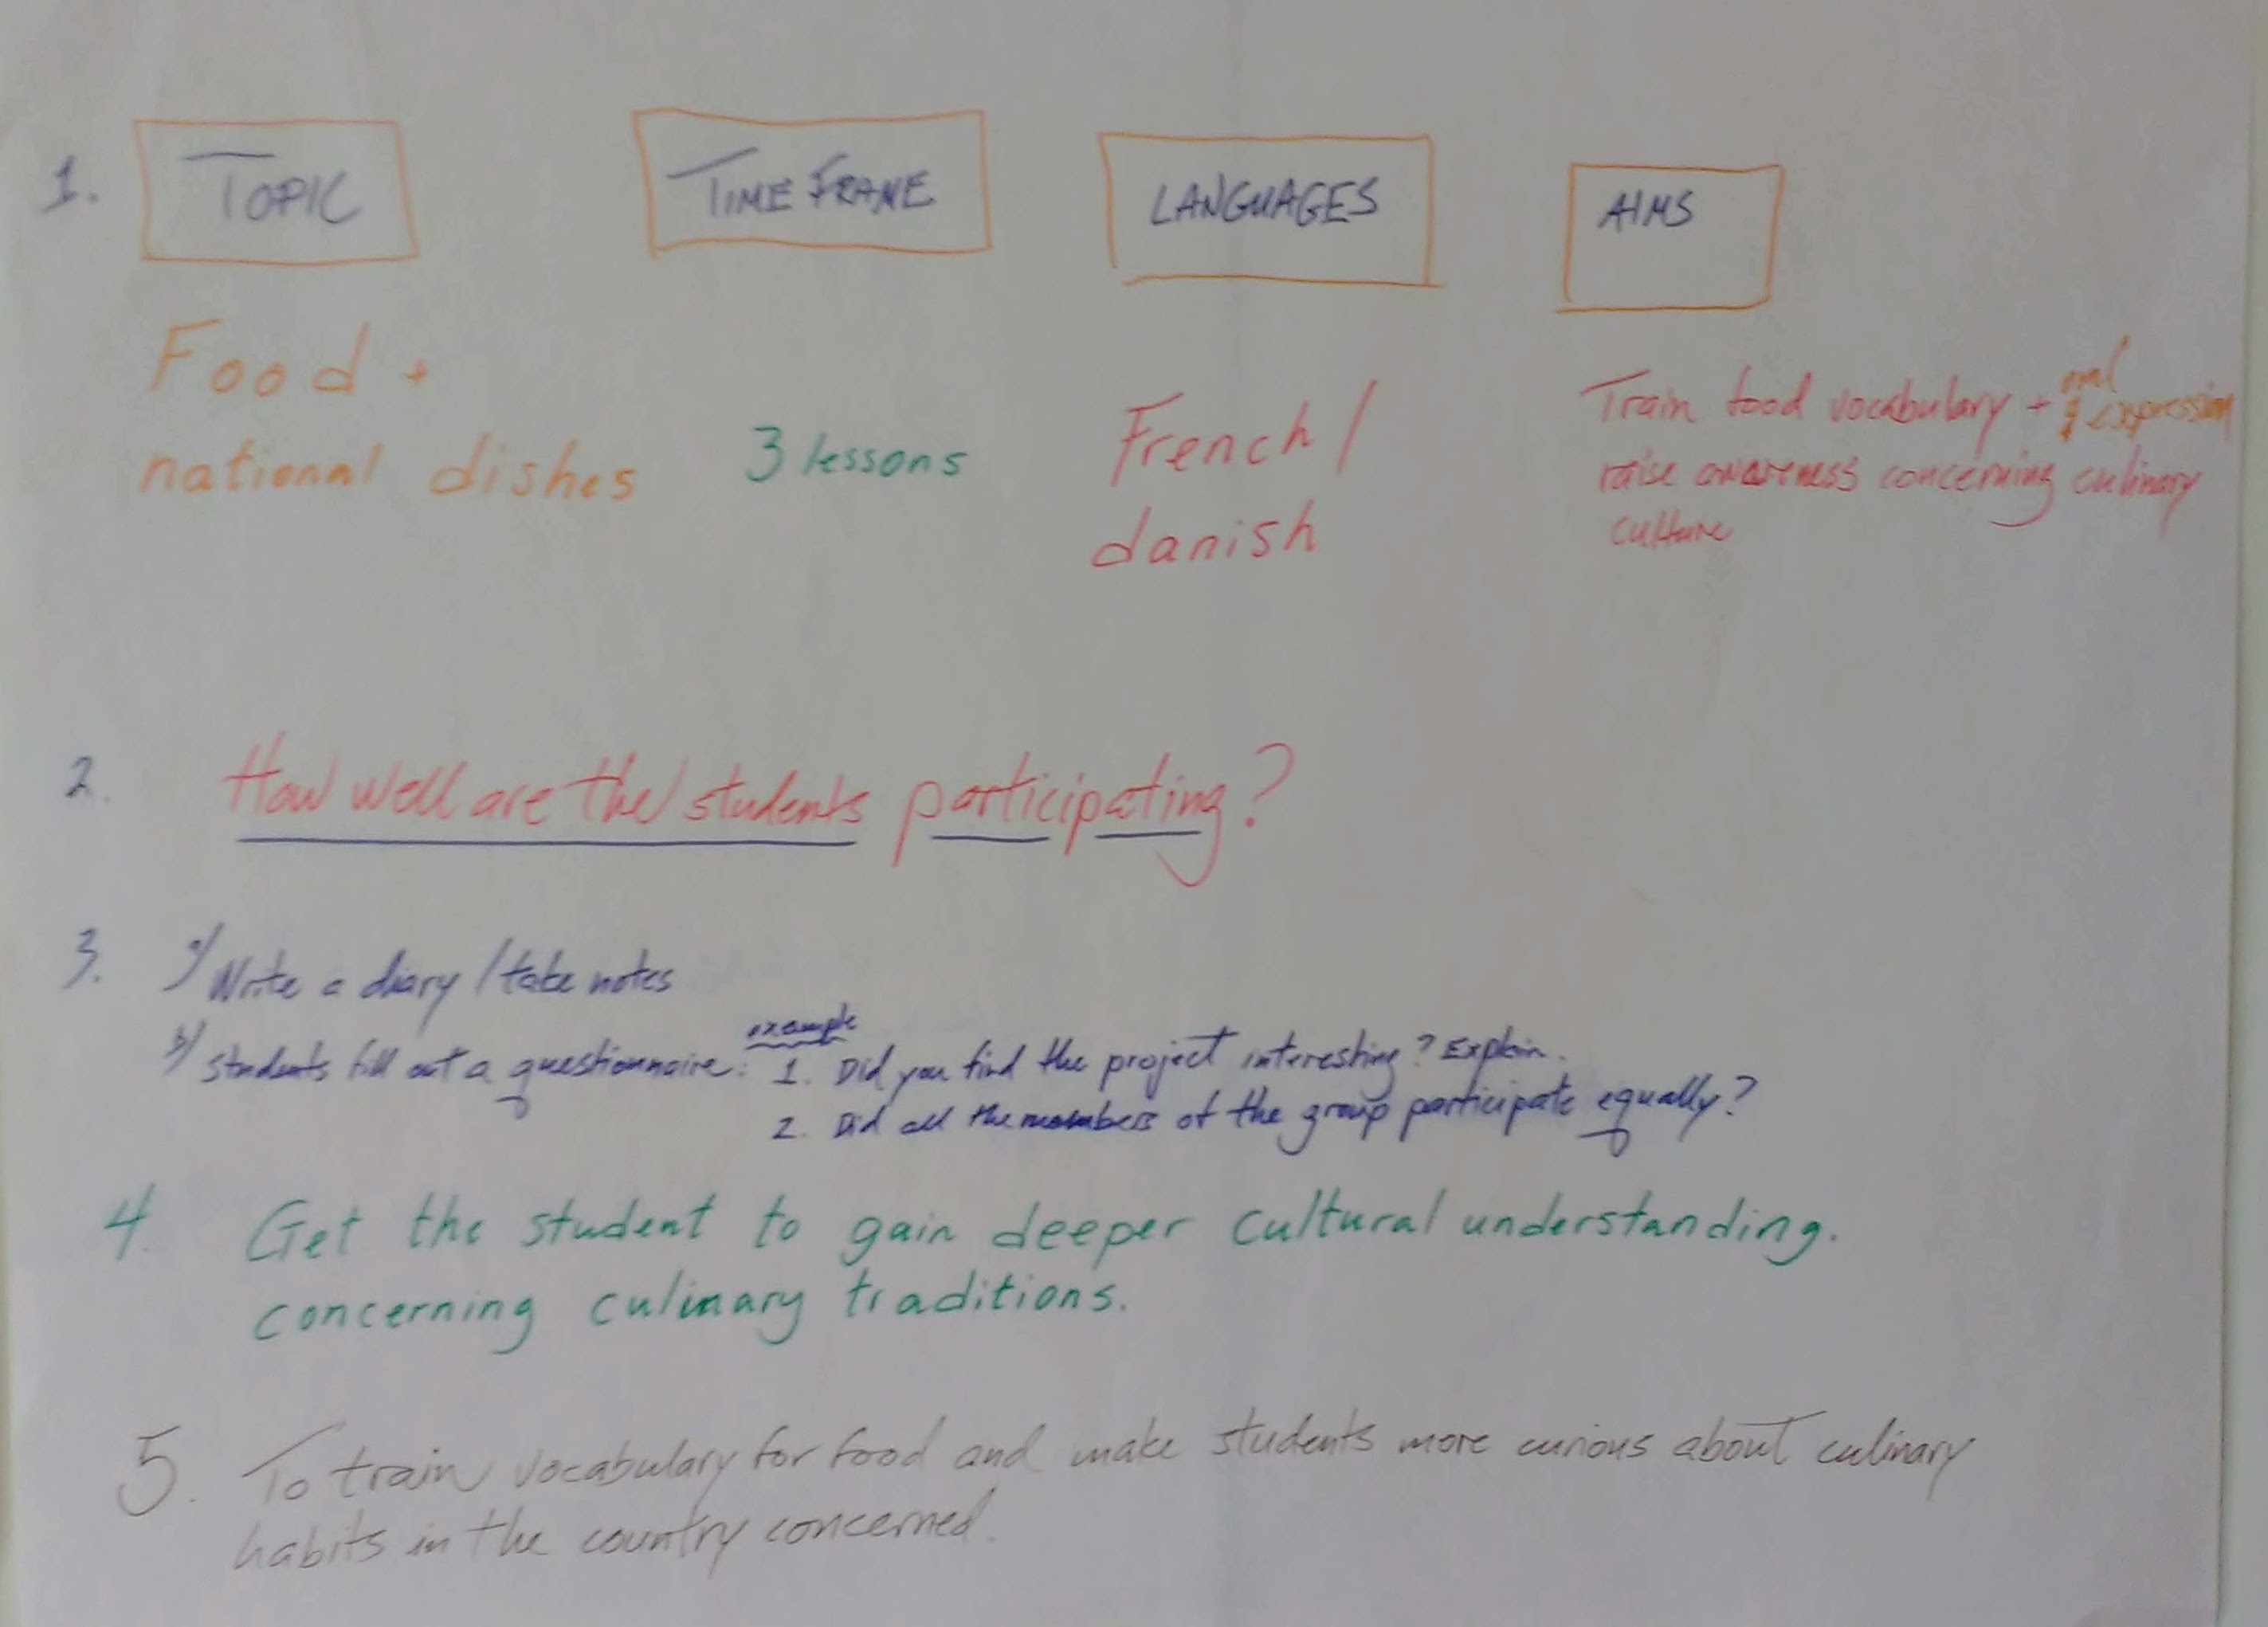 1. TOPIC TIME FRAME LANGUAGES AIMS
Food +
national dishes
3 lessons
French /
danish
Train food vocabulary + oral expression
raise awareness concerning culinary
culture
2. How well are the students participating?
3. a/ Write a diary / take notes
b/ students fill out a questionnaire: example 1. Did you find the project interesting? Explain.
2. Did all the members of the group participate equally?
4. Get the student to gain deeper cultural understanding.
concerning culinary traditions.
5. To train vocabulary for food and make students more curious about culinary
habits in the country concerned.